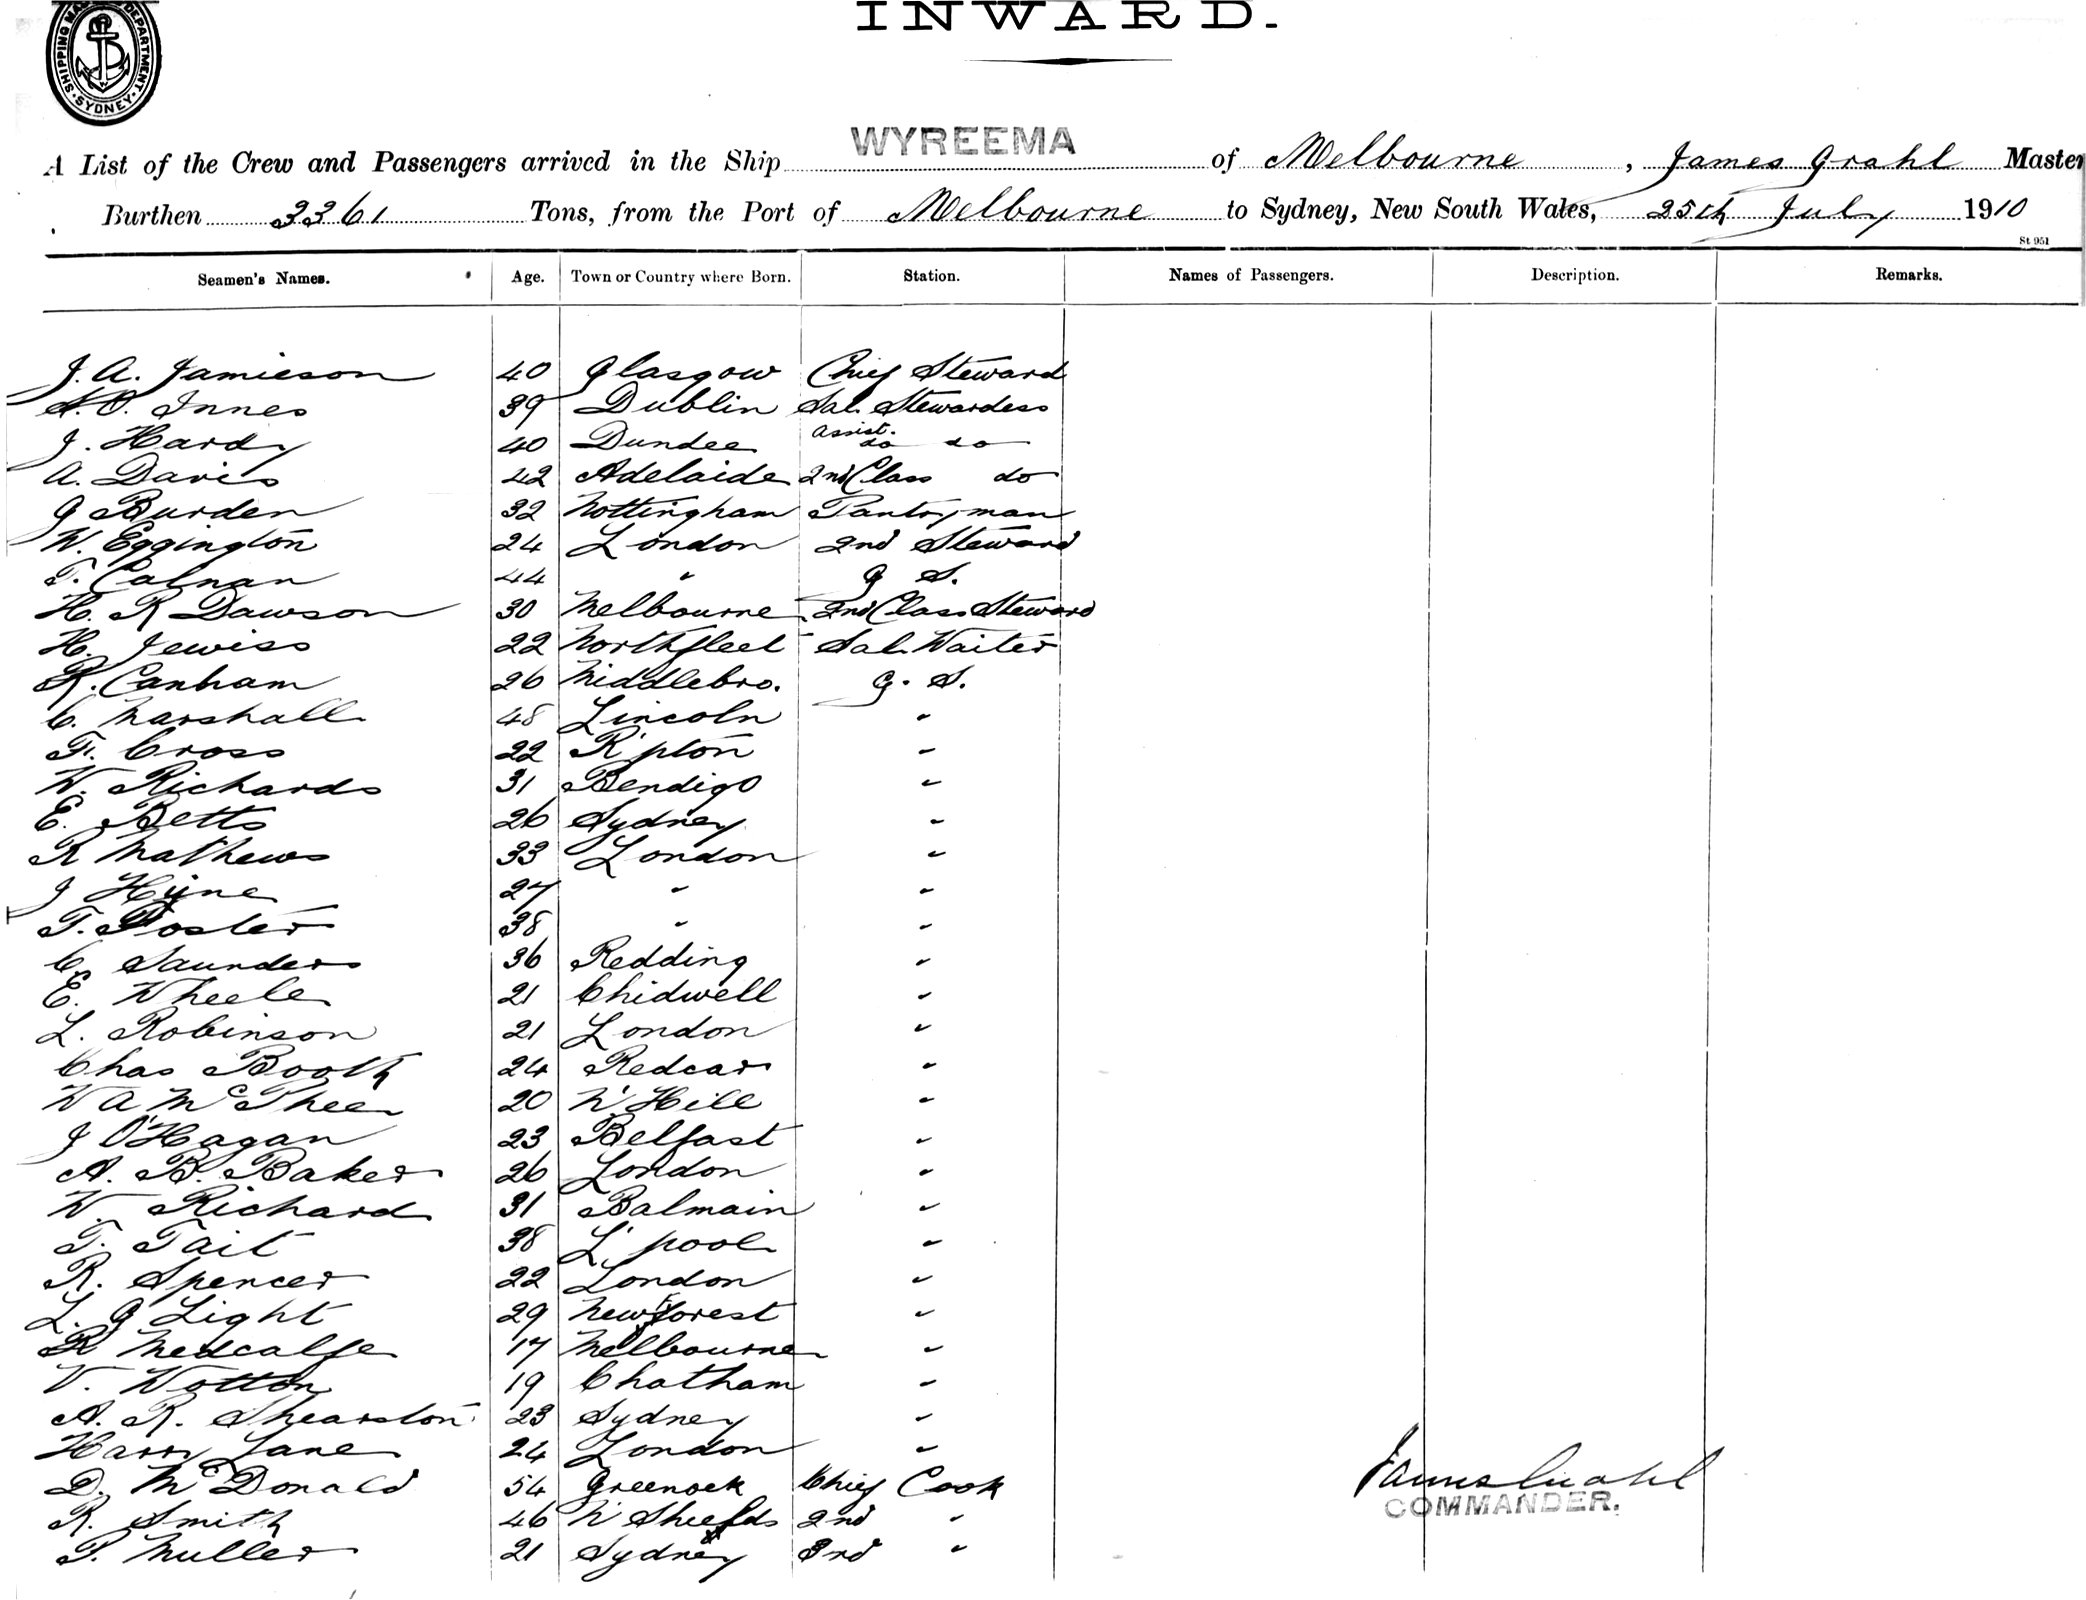 INWARD.
SHIPPING MASTER'S DEPARTMENT SYDNEY
A List of the Crew and Passengers arrived in the Ship WYREEMA of Melbourne, James Grahl Master
Burthen 3361 Tons, from the Port of Melbourne to Sydney, New South Wales, 25th July 1910
St 951
Seamen's Names. Age. Town or Country where Born. Station. Names of Passengers. Description. Remarks.
J. A. Jamieson 40 Glasgow Chief Steward
Innes 39 Dublin Sal. Stewardess
J. Hardy 40 Dundee Assist. do do
A. Davis 42 Adelaide 2nd Class do
G Burden 32 Nottingham Pantryman
W. Eggington 24 London 2nd Steward
T. Calnan 44 " G S.
H. R Dawson 30 Melbourne 2nd Class Steward
H. Jewiss 22 Northfleet Sal. Waiter
R. Canham 26 Middlebro. G. S.
C. Marshall 48 Lincoln "
F. Cross 22 R'pton "
W. Richards 31 Bendigo "
E. Betts 26 Sydney "
R Mathews 33 London "
J Hyne 27 " "
T. Foster 38 " "
C. Saunders 36 Redding "
E. Wheeler 21 Chidwell "
L. Robinson 21 London "
Chas Booth 24 Redcar "
W A McPhee 20 N' Hill "
J O'Hagan 23 Belfast "
A. B. Baker 26 London "
W. Richard 31 Balmain "
T. Tait 38 L'pool "
R. Spencer 22 London "
L. G Light 29 New Forest "
R Medcalfe 17 Melbourne "
V. Wotton 19 Chatham "
A. R. Shearston 23 Sydney "
Harry Lane 24 London "
D. McDonald 54 Greenock Chief Cook
R. Smith 46 N' Shields 2nd "
P. Muller 21 Sydney 3rd "
James Grahl
COMMANDER.